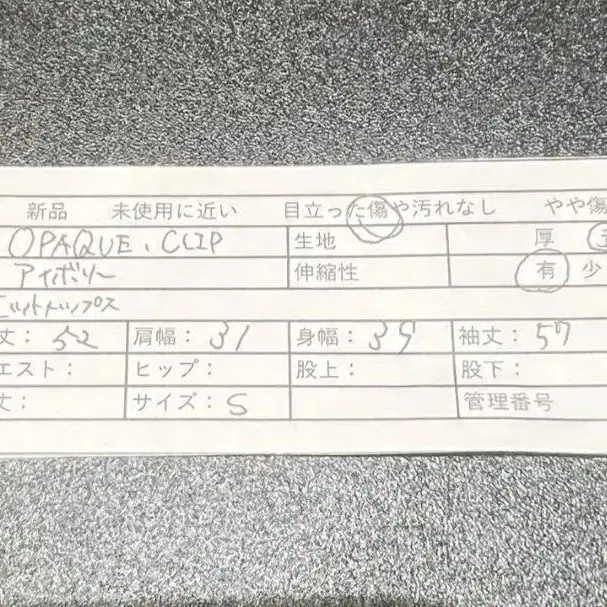 新品 未使用に近い 目立った傷や汚れなし やや傷
OPAQUE.CLIP 生地 厚
アイボリー 伸縮性 有 少
ニットトップス
丈: 52 肩幅: 31 身幅: 39 袖丈: 57
エスト: ヒップ: 股上: 股下:
丈: サイズ: S 管理番号